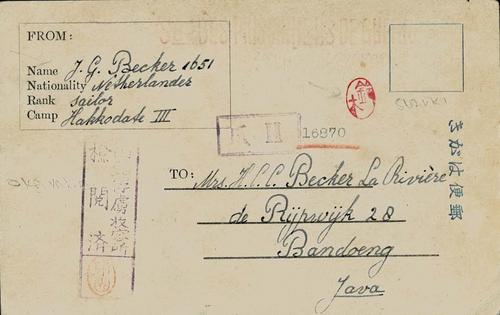 FROM:
Name J. G. Becker 1651
Nationality Netherlander
Rank sailor
Camp Hakkodate III
16870
検閲済
TO:
Mrs. H. C. C. Becker La Rivière
de Rijpwijk 28
Bandoeng
Java
郵便はがき